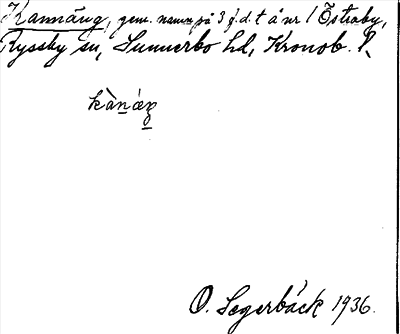 Kannäng, gem. namn på 3 j.d.t å nr 1 Östraby,
Ryssby sn, Sunnerbo hd, Kronob. l.
O. Segerbäck 1936.